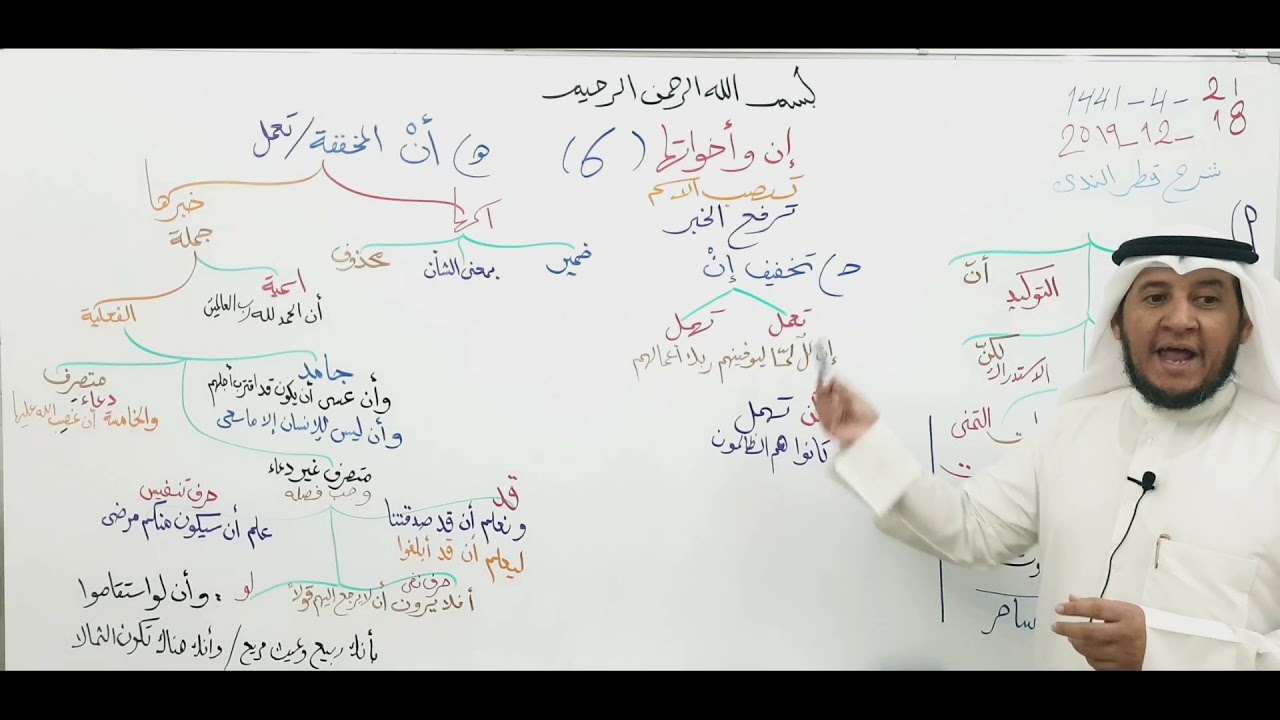 بسم الله الرحمن الرحيم
21 - 4 - 1441
18 - 12 - 2019
شرح قطر الندى
أنّ
التوكيد
لكنّ
الاستدراك
التمني
ساحر
إن وأخواتها (6)
تنصب الاسم
ترفع الخبر
ح) تخفيف إنْ
تعمل
تهمل
لمّا ليوفينهم ربك أعمالهم
تهمل
كانوا هم الظالمون
ه) أنْ المخففة / تعمل
اسمها
ضمير
بمعنى الشأن
محذوف
خبرها
جملة
اسمية
أن الحمد لله رب العالمين
الفعلية
جامد
وأن عسى أن يكون قد اقترب أجلهم
وأن ليس للإنسان إلا ما سعى
متصرف
دعاء
والخامسة أن غضِب الله عليها
متصرف غير دعاء
وجب فصله
قد
ونعلم أن قد صدقتنا
ليعلم أن قد أبلغوا
حرف تنفيس
علم أن سيكون منكم مرضى
حرف نفي
أفلا يرون أن لا يرجع إليهم قولاً
لو : وأن لو استقاموا
بأنك ربيع وغيث مريع / وأنك هناك تكون الثمالا